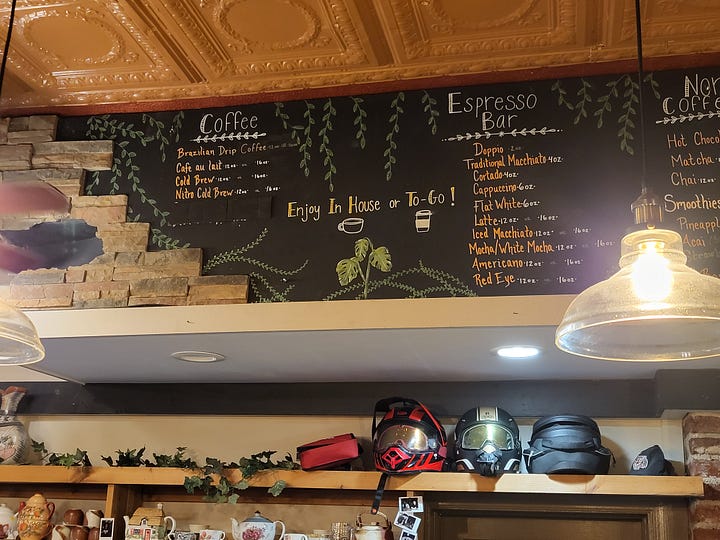 Coffee
Brazilian Drip Coffee
Cafe au lait 12oz 16oz
Cold Brew 12oz 16oz
Nitro Cold Brew 12oz 16oz
Enjoy In House or To-Go!
Espresso
Bar
Doppio 2oz
Traditional Macchiato 4oz
Cortado 4oz
Cappuccino 6oz
Flat White 6oz
Latte 12oz 16oz
Iced Macchiato 12oz 16oz
Mocha/White Mocha 12oz 16oz
Americano 12oz 16oz
Red Eye 12oz 16oz
Hot Choc
Matcha
Chai
Smoothies
Pineapple
Acai